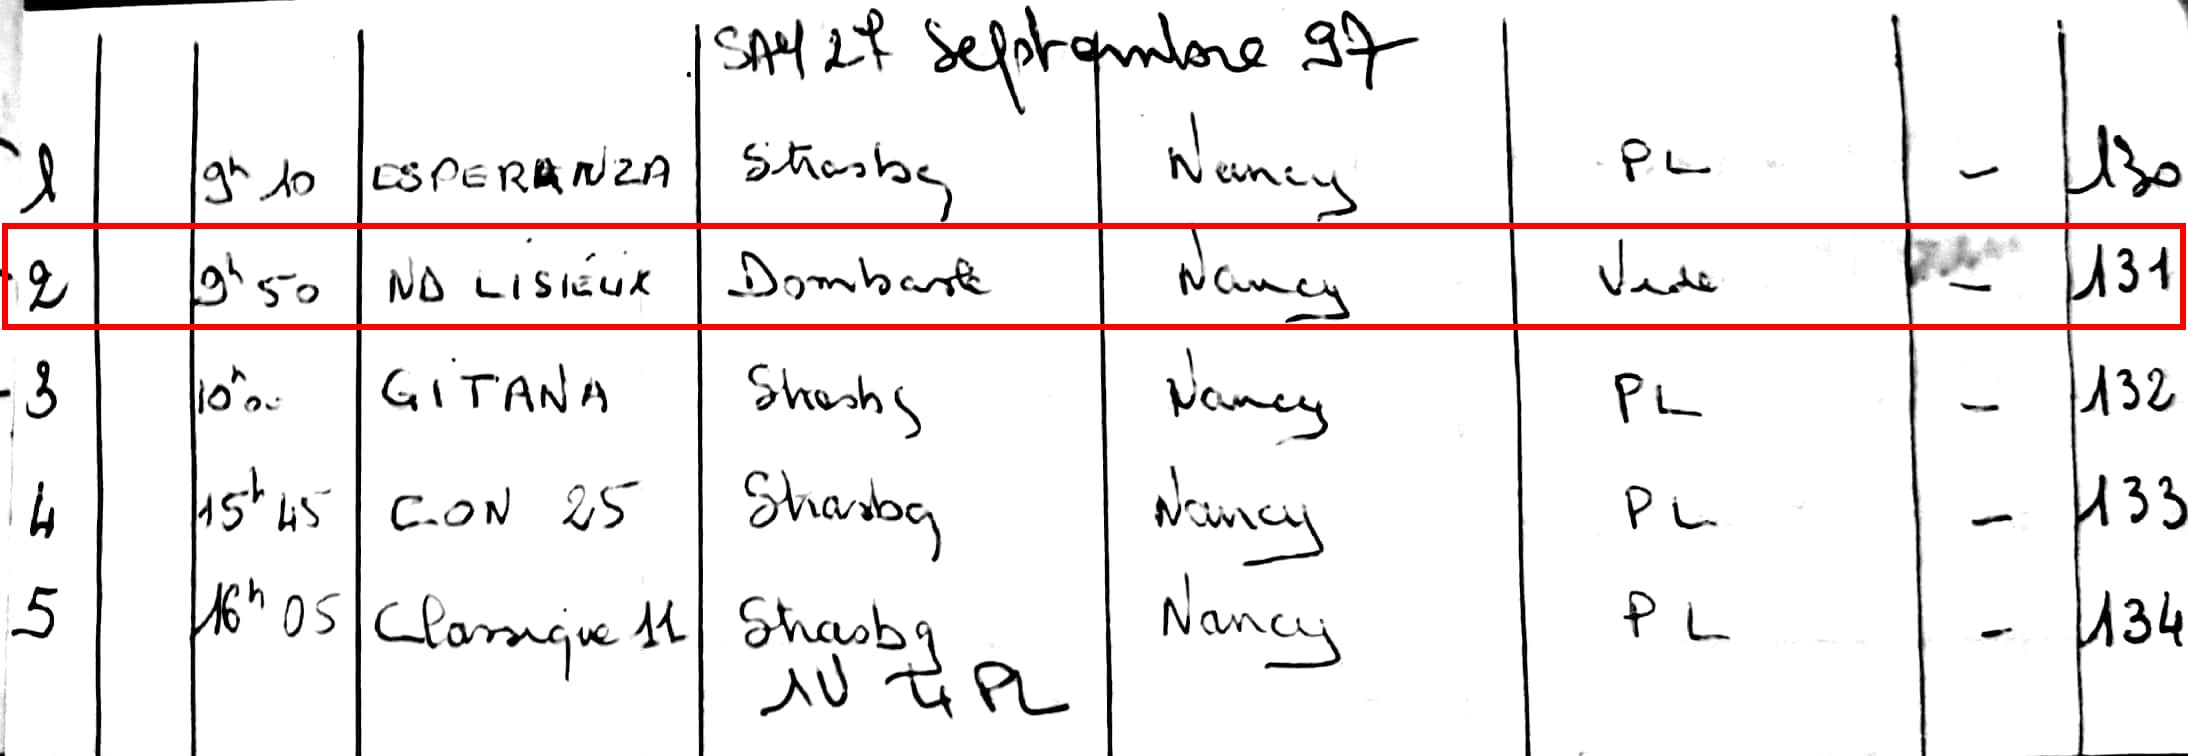 SAM 27 Septembre 97
1 9h 10 ESPERANZA Strasbg Nancy PL - 130
2 9h 50 ND LISIEUX Dombasle Nancy Vide - 131
3 10h00 GITANA Strasbg Nancy PL - 132
4 15h 45 CON 25 Strasbg Nancy PL - 133
5 16h 05 Classique 11 Strasbg Nancy PL - 134
1V 4 PL